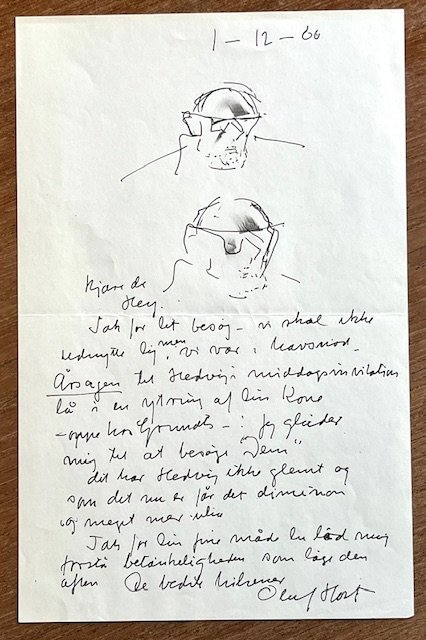 1 – 12 – 60
Kjære de
Hey.
Tak for let besøg – vi skal ikke
udnytte dig men vi var i havsnød.
Årsagen til Hedvigs middagsinvitation
lå i en ytring af din Kone
– oppe hos Grundts – : Jeg glæder
mig til at besøge Dem"
dit har Hedvig ikke glemt og
som det nu er får det dimension
og meget mer
Tak for din fine måde du lod mig
forstå betænkeligheden som låge den
aften De bedste hilsener
Oluf Høst